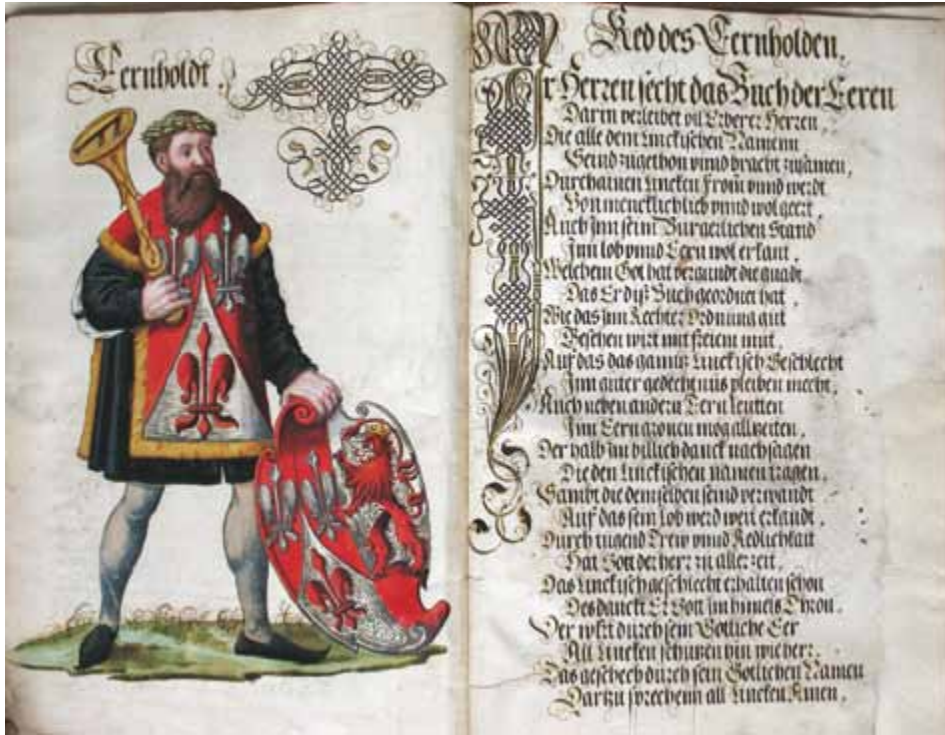 Eernholdt.
Red des Eernholden.
Ir Herren secht das Buch der Eeren
Darin verleibet vil Erberer Herren,
Die alle dem Linckischen Namenn
Seind zugethon vnnd bracht zusamen,
Durch ainen Lincken From vnnd werdt
Von menecklichlich vnnd wol geert,
Auch Inn seim Burgerlichen Stand
Inn lob vnnd Eern wol erkant,
Welchem Got hat vergundt die gnadt
Das Er diß Buch geordnet hat,
Wie das Inn Rechter Ordnung gut
Besehen wirt mit freiem mut,
Auf das das gannz Linckisch Geschlecht
Inn guter gedechtnus pleiben mecht,
Auch neben andern Eern leutten
Inn Eern gronen mög allzeiten,
Der halb Im billich danck nachsagen
Die den Linckischen namen tragen,
Sambt die demselben seind verwandt
Auf das sein lob werd weit erkandt,
Durch tugend Trew vnnd Redlichkait
Hat Gott der herr zu aller zeit,
Das Linckisch geschlecht erhalten schon
Des danckt Er Gott Im himels Thron,
Der wölt durch sein Gottliche Eer
All Lincken schutzen hin wie her,
Das geschech durch sein Gottlichen Namen
Dartzu sprechenn all Lincken Amen,